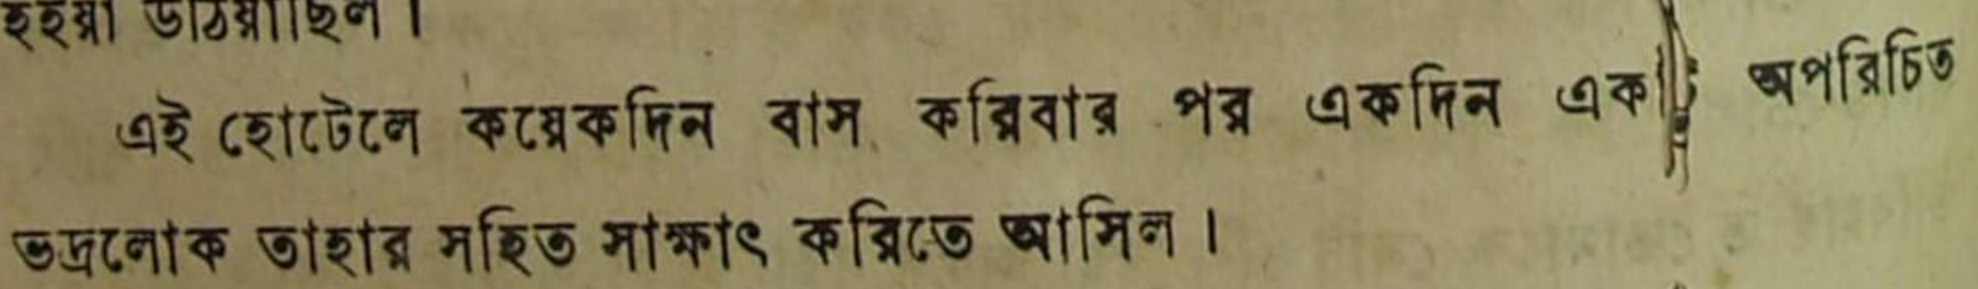 হইয়া উঠিয়াছিল।
এই হোটেলে কয়েকদিন বাস করিবার পর একদিন একটি অপরিচিত
ভদ্রলোক তাহার সহিত সাক্ষাৎ করিতে আসিল।